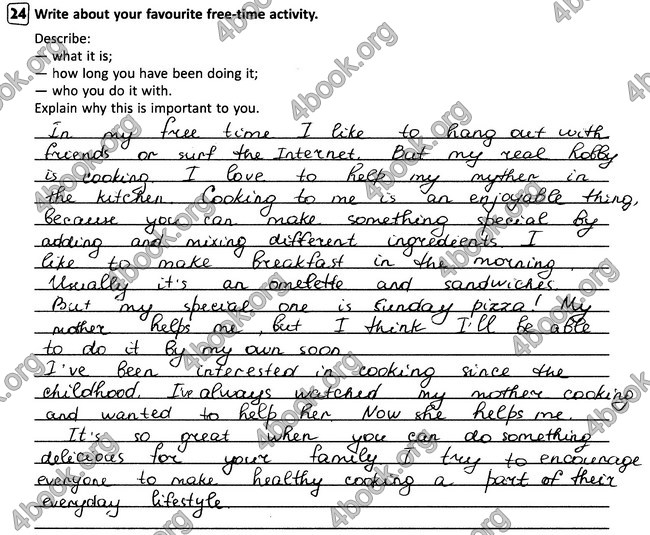 24 Write about your favourite free-time activity.
Describe:
— what it is;
— how long you have been doing it;
— who you do it with.
Explain why this is important to you.
In my free time I like to hang out with
friends or surf the Internet. But my real hobby
is cooking. I love to help my mother in
the kitchen. Cooking to me is an enjoyable thing,
because you can make something special by
adding and mixing different ingredients. I
like to make breakfast in the morning.
Usually it's an omelette and sandwiches.
But my special one is Sunday pizza! My
mother helps me, but I think I'll be able
to do it by my own soon.
I've been interested in cooking since the
childhood. I've always watched my mother cooking
and wanted to help her. Now she helps me.
It's so great when you can do something
delicious for your family. I try to encourage
everyone to make healthy cooking a part of their
everyday lifestyle.
4book.org